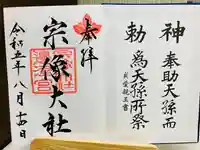 神 奉助天孫而
勅 為天孫所祭
貞愛親王書
奉拝
宗像大社
令和五年八月日